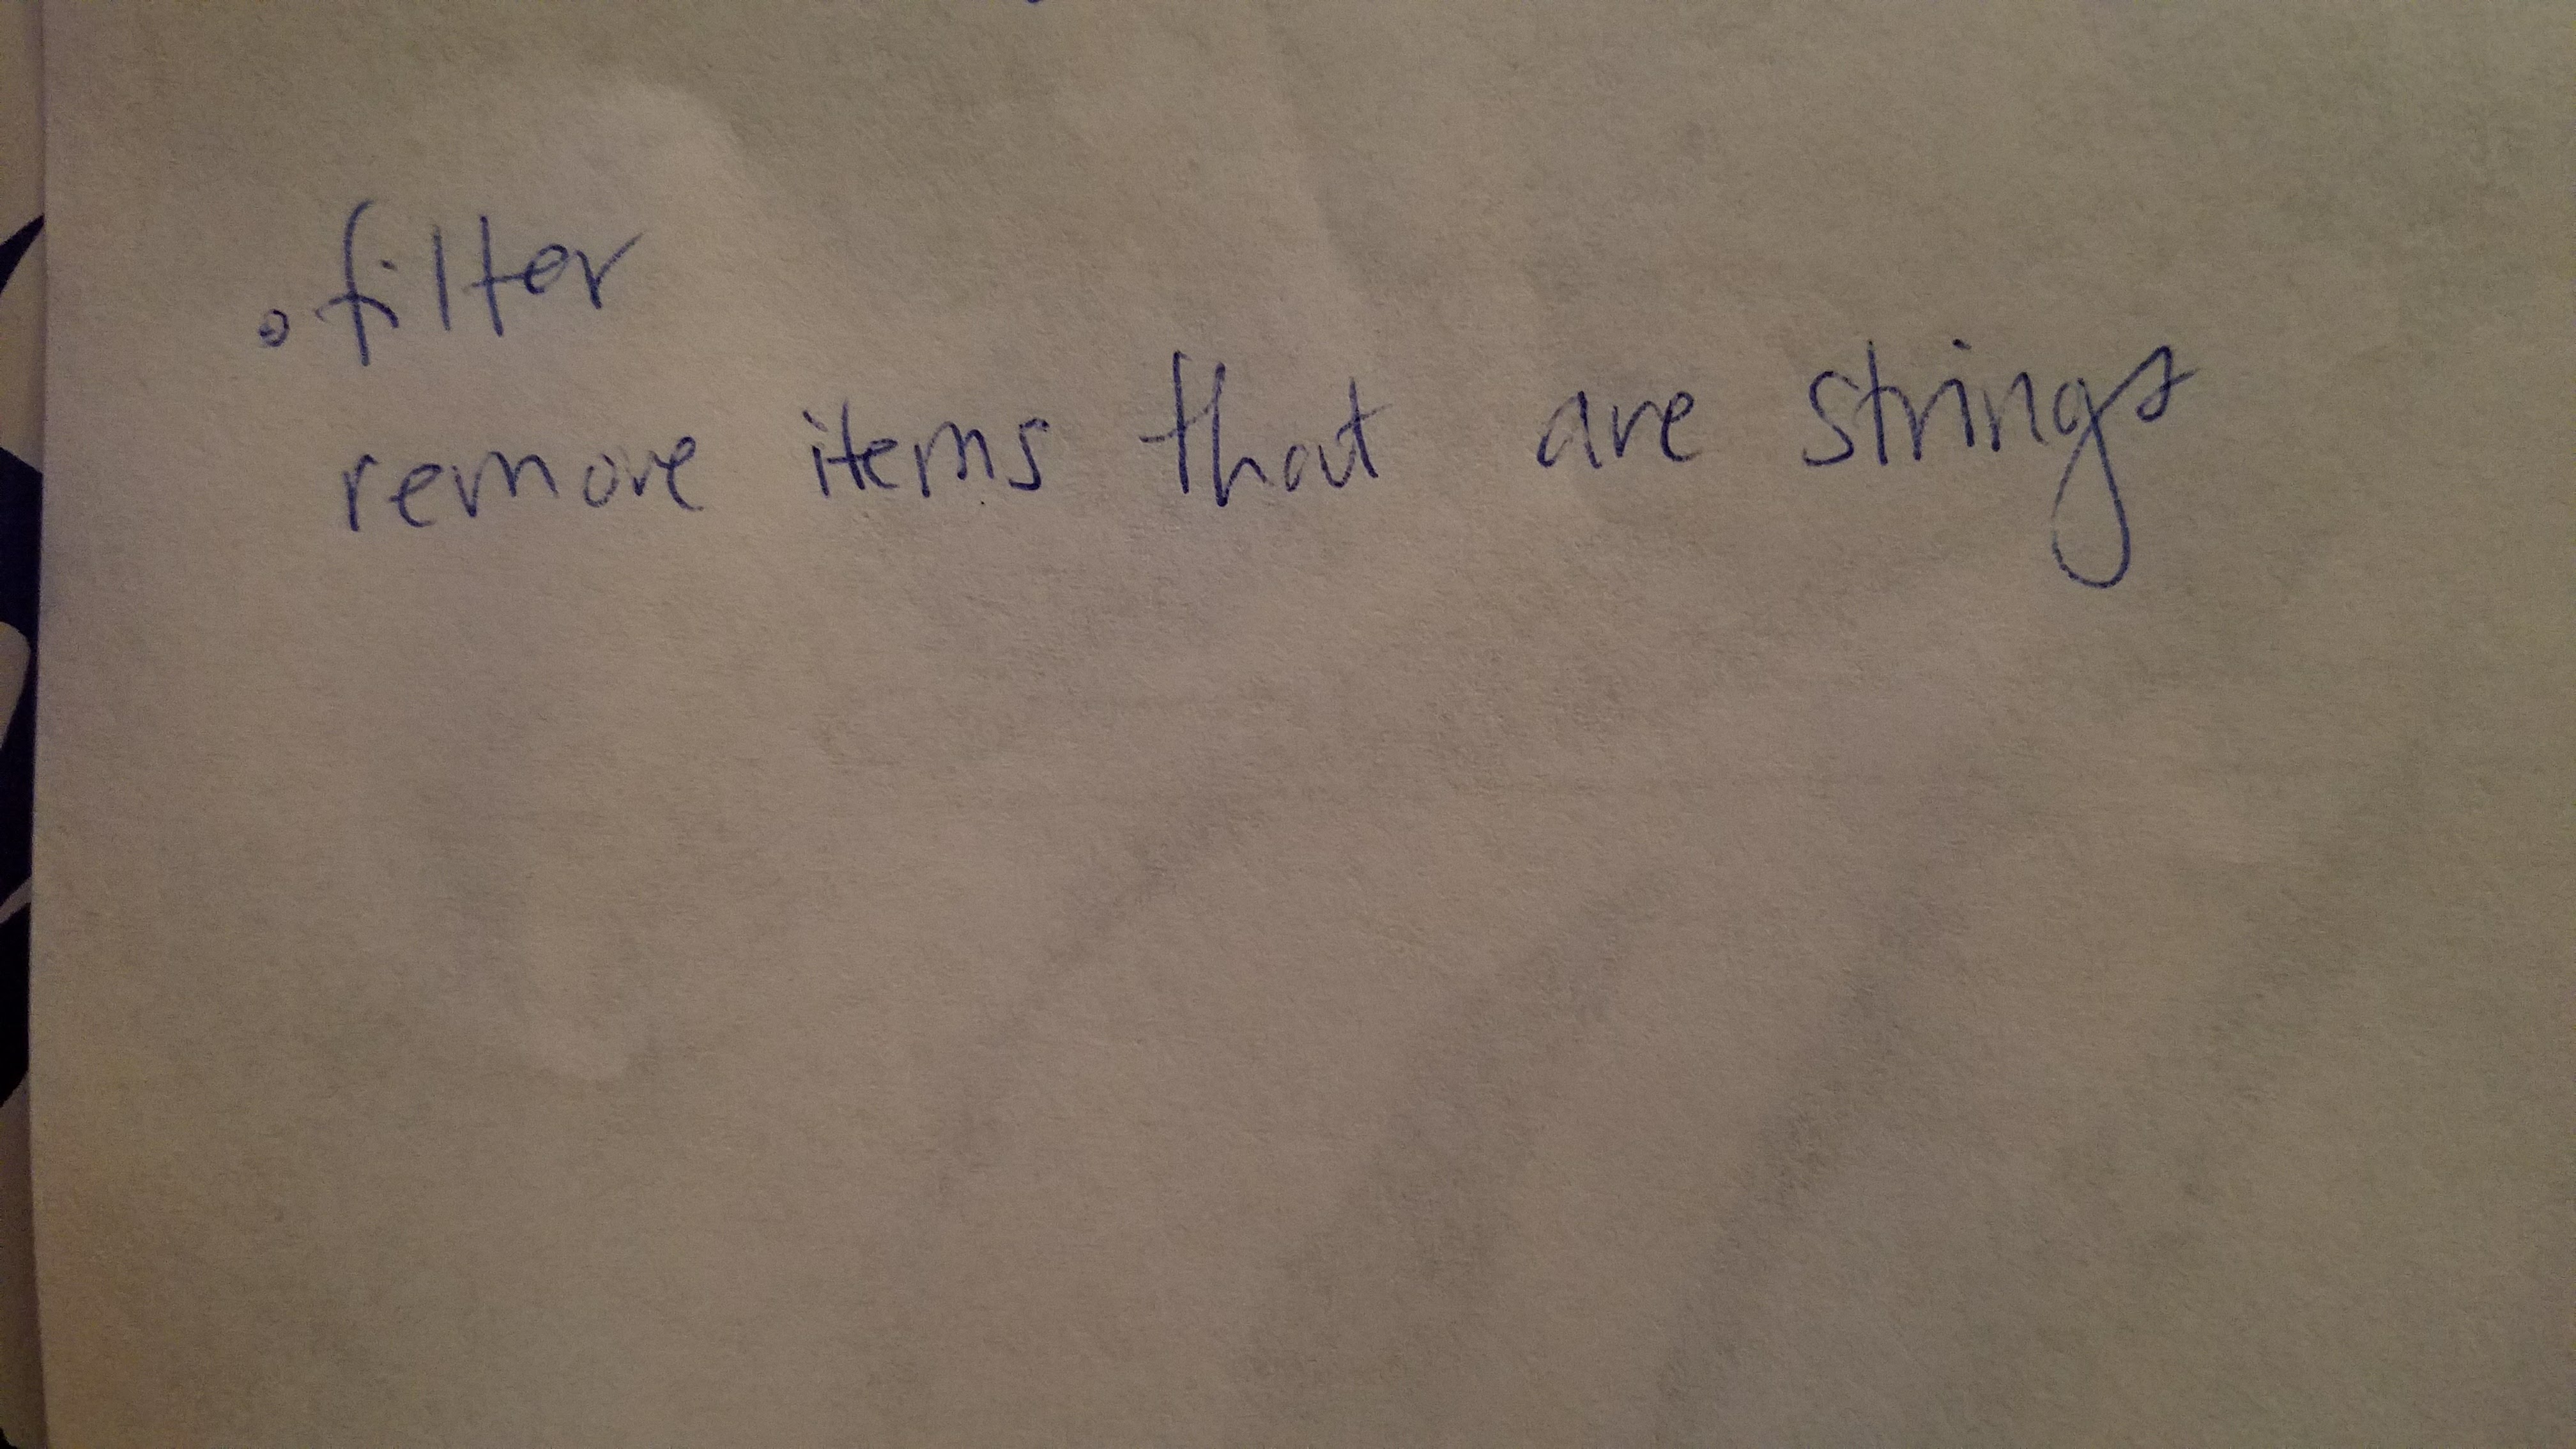 .filter
remove items that are strings